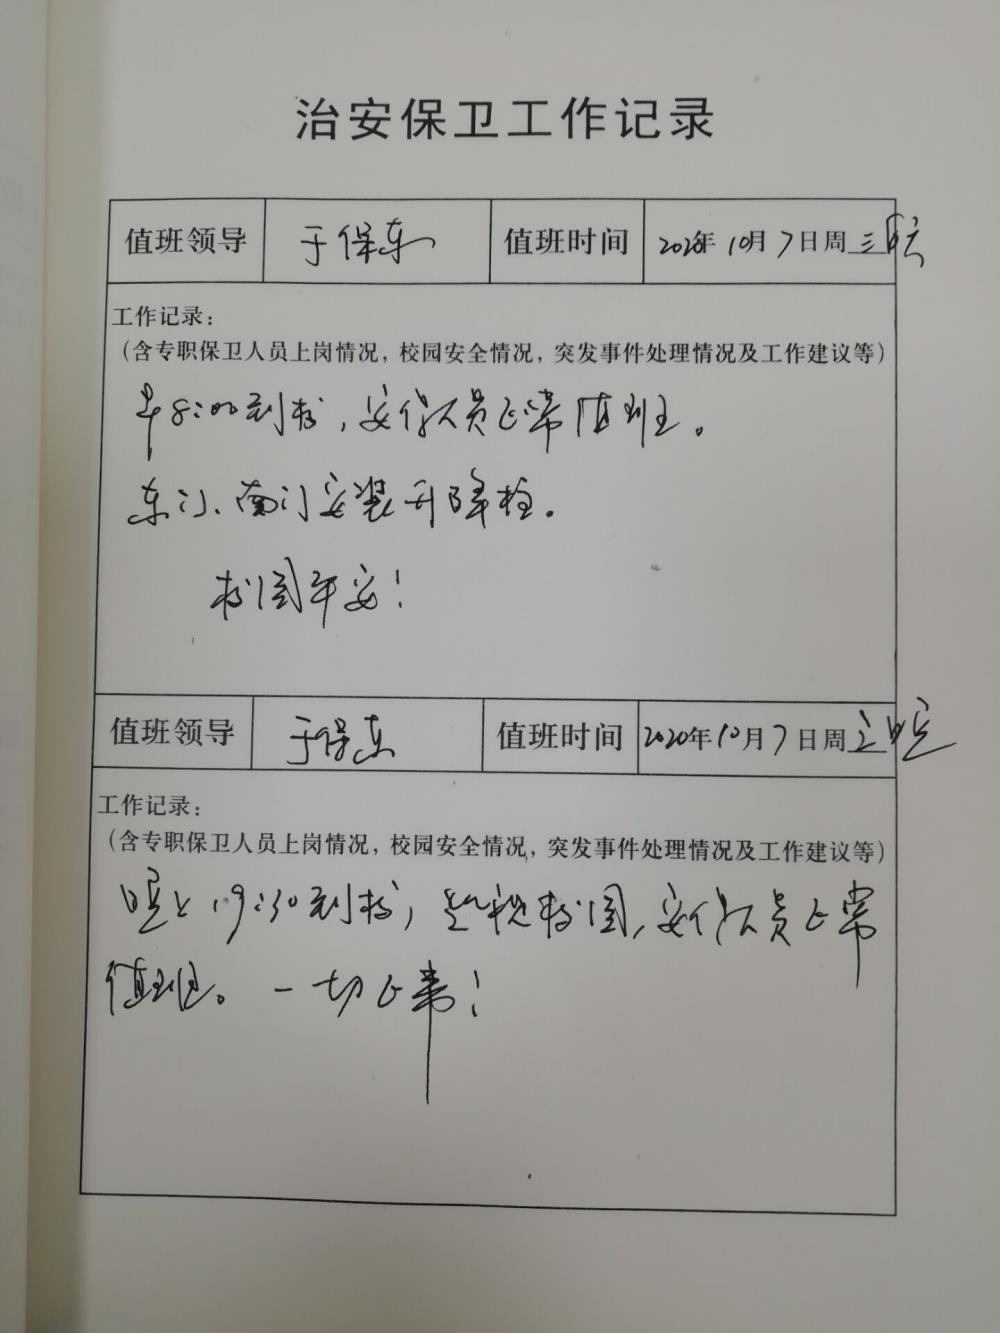 治安保卫工作记录
值班领导 于保东 值班时间 2020年10月7日周三
工作记录：
（含专职保卫人员上岗情况，校园安全情况，突发事件处理情况及工作建议等）
早8:00到校，安保人员正常值班。
东门、南门安装升降柱。
校园平安！
值班领导 于保东 值班时间 2020年10月7日周三晚
工作记录：
（含专职保卫人员上岗情况，校园安全情况，突发事件处理情况及工作建议等）
晚上19:30到校，巡视校园，安保人员正常
值班。一切正常！